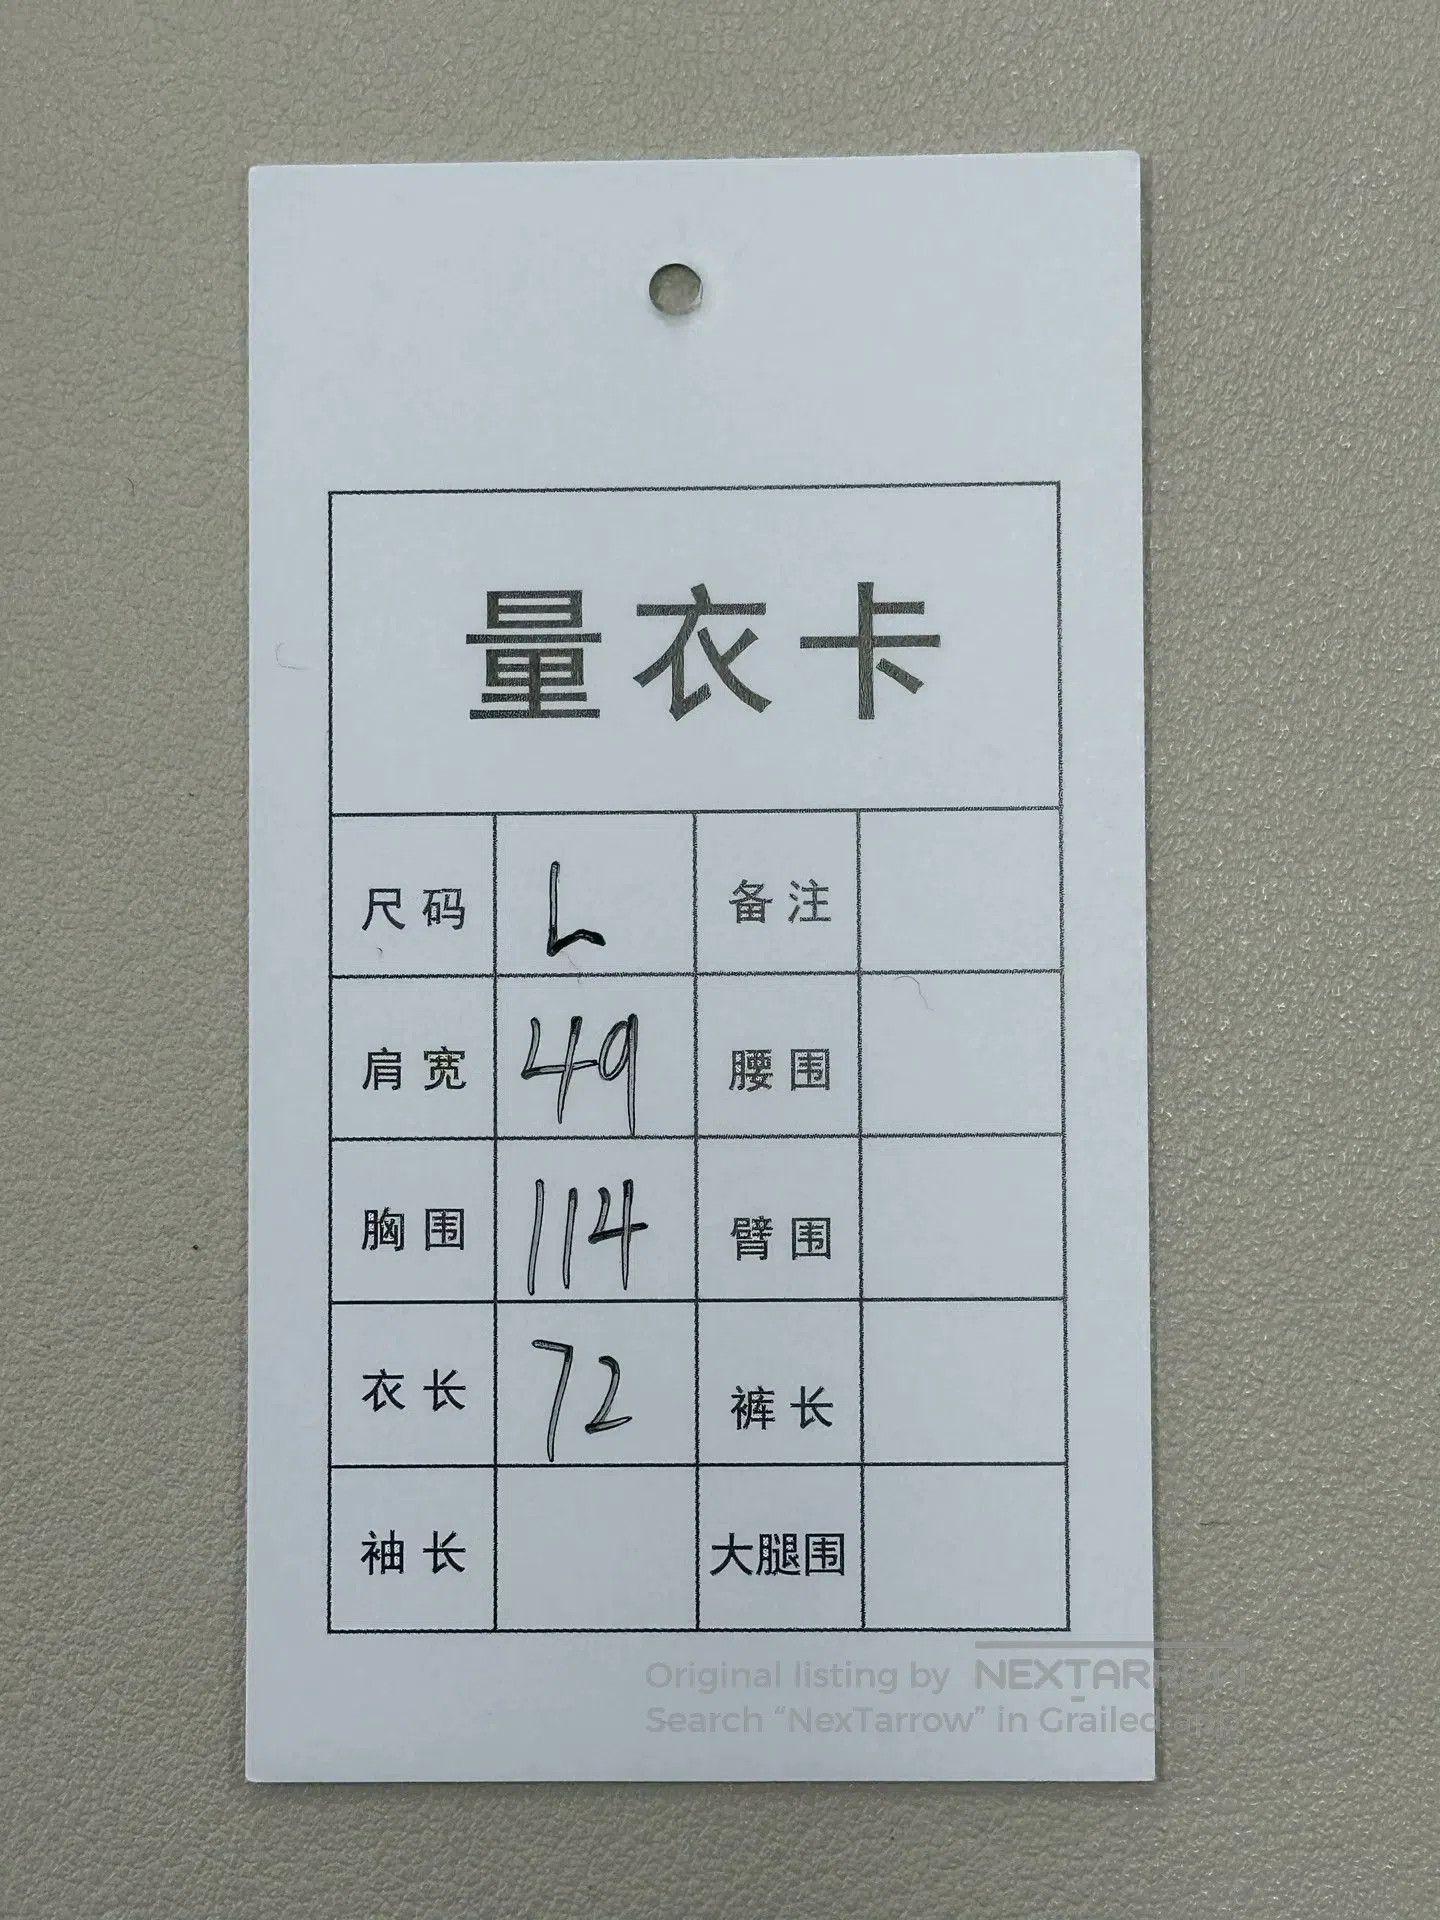 量衣卡
尺码 L 备注
肩宽 49 腰围
胸围 114 臂围
衣长 72 裤长
袖长 大腿围
Original listing by NEXTARROW
Search “NexTarrow” in Grailed app